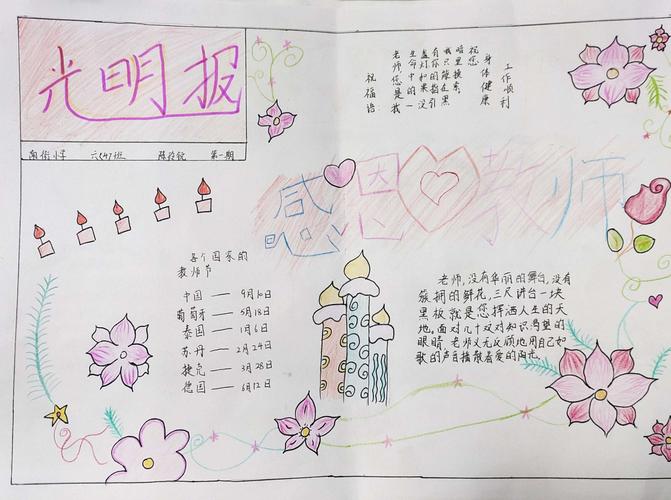 光明报
南街小学 六(4)班 第一期
祝福语:
老师您是我
生命中的一
盏灯如果没
有你的指引
我只能在黑
暗里摸索
祝您
身体健康
工作顺利
感恩教师
各个国家的
教师节
中国——9月10日
葡萄牙——5月18日
泰国——1月6日
苏丹——2月24日
捷克——3月28日
德国——6月12日
老师,没有华丽的舞台,没有
簇拥的鲜花,三尺讲台一块
黑板就是您挥洒人生的天
地,面对几十双对知识渴望的
眼睛,老师义无反顾地用自己如
歌的声音播散着爱的阳光。